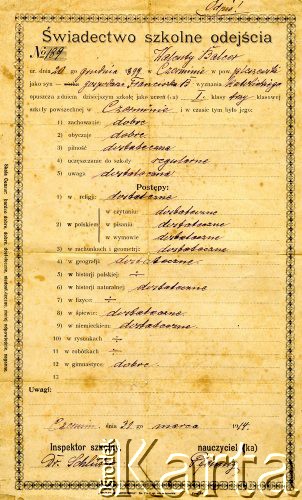 Odpis!
Świadectwo szkolne odejścia
№ 169
Walenty Balcer
ur. dnia 20 grudnia 899 w Czerminie w pow.
jako syn gospodarz Franciszka B wyznania katolickiego
opuszcza z dniem dzisiejszym szkołę jako uczeń I. klasy klasowej
szkoły powszechnej w Czerminie i w czasie tym było jego:
1) zachowanie: dobre
2) obyczaje dobre
3) pilność dostateczna
4) uczęszczanie do szkoły regularne
5) uwaga dostateczna
Postępy:
1) w religji: dostateczne
w czytaniu: dostateczne
2) w polskiem w pisaniu dostateczne
w wymowie dostateczne
3) w rachunkach i geometrji: dostateczne
4) w geografji dostateczne
5) w historji polskiej ÷
6) w historji naturalnej dostateczne
7) w fizyce: ÷
8) w śpiewie: dostateczne
9) w niemieckiem: dostateczne
10) w rysunkach ÷
11) w robótkach ÷
12) w gimnastyce: dobre
13)
Uwagi:
Czermin, dnia 21. marca 1914.
Inspektor szkolny nauczyciel (ka)
Dr.
ośrodek
Karta